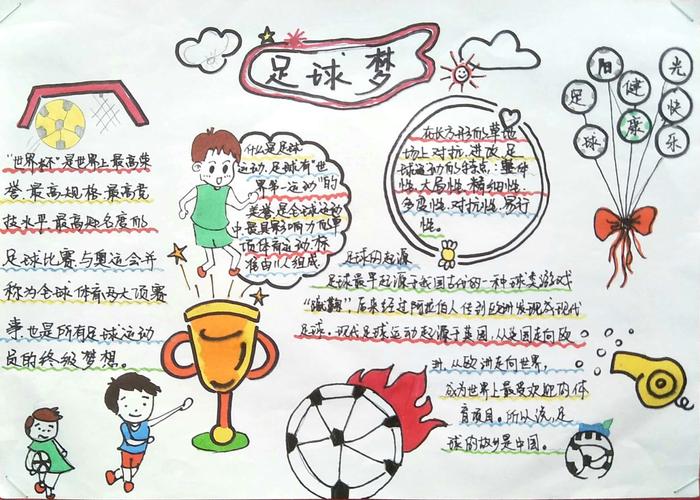 足球梦
"世界杯"是世界上最高荣
誉、最高规格、最高竞
技水平、最高知名度的
足球比赛,与奥运会并
称为全球体育两大顶赛
事也是所有足球运动
员的终级梦想。
什么是足球
运动,足球有"世
界第一运动"的
美誉,是全球运动
中最具影响力的单
项体育运动,标
准由11人组成
在长方形的草地
场上对抗、进攻,足
球运动的特点:整体
性、大局性、精细性、
多变性、对抗性、易行
性。
阳
光
足
健
快
球
康
乐
足球的起源
足球最早起源于我国古代的一种球类游戏
"蹴鞠",后来经过阿拉伯人传到欧洲发现成现代
足球。现代足球运动起源于英国,从英国走向欧
洲,从欧洲走向世界,
成为世界上最受欢迎的体
育项目。所以说,足
球的故乡是中国。